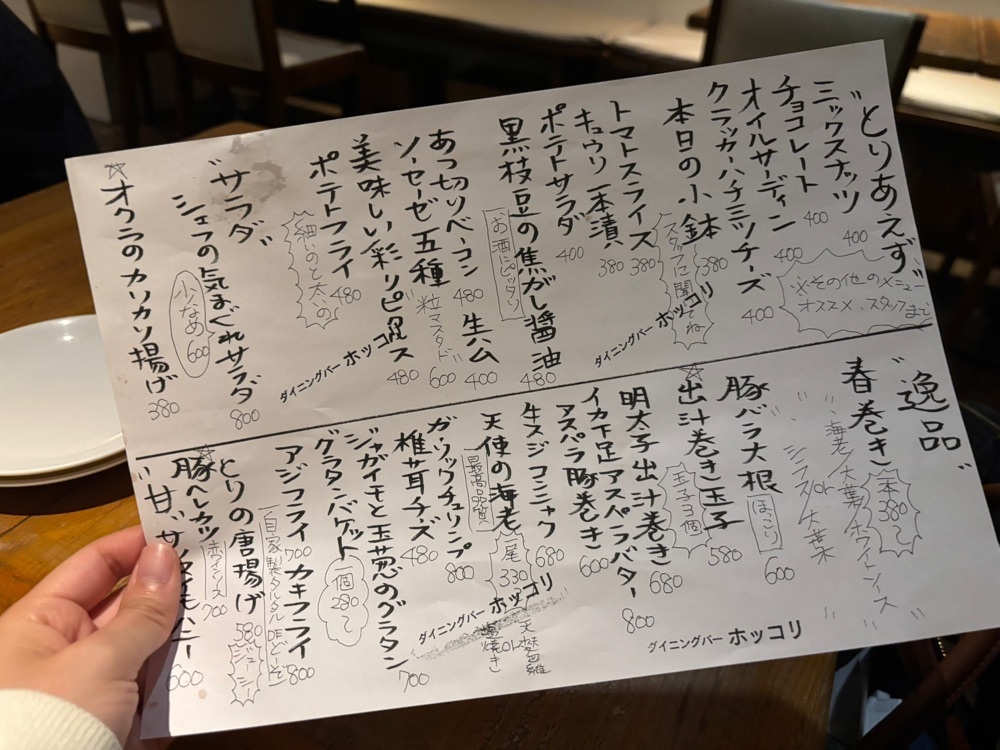 "とりあえず"
ミックスナッツ 400
チョコレート 400
オイルサーディン 400
クラッカーハチミツチーズ 400
本日の小鉢 380
スタッフに聞いてね
トマトスライス 380
キュウリ一本漬 380
ポテトサラダ 400
黒枝豆の焦がし醤油 480
お酒にピッタリ
あつ切りベーコン 480 生ハム 400
ソーセージ五種 粒マスタード 600
美味しい彩りピクルス 480
ポテトフライ 480
細いのと太いの
"サラダ"
シェフの気まぐれサラダ 800
少なめ 600
☆オクラのカリカリ揚げ 380
※その他のメニュー
オススメ、スタッフまで
ダイニングバー ホッコリ
ダイニングバー ホッコリ
"逸品"
春巻き 一本 380〜
海老/大葉/ホワイトソース
シラスor大葉
豚バラ大根 ほっこり 600
☆出汁巻き玉子 580
玉子3個
明太子出汁巻き 680
イカ下足アスパラバター 800
アスパラ豚巻き 600
牛スジコンニャク 680
天使の海老 一尾 330
最高品質
天麩羅
or
塩焼き
ガーリックチュリンプ 800
椎茸チーズ 480
ジャガイモと玉葱のグラタン 700
グラタンバゲット 一個 280〜
アジフライ 700 カキフライ 800
自家製タルタルDEどーぞ
とりの唐揚げ 580
ジューシー
☆豚ヘレカツ 700
"甘"
600
ダイニングバー ホッコリ
ダイニングバー ホッコリ